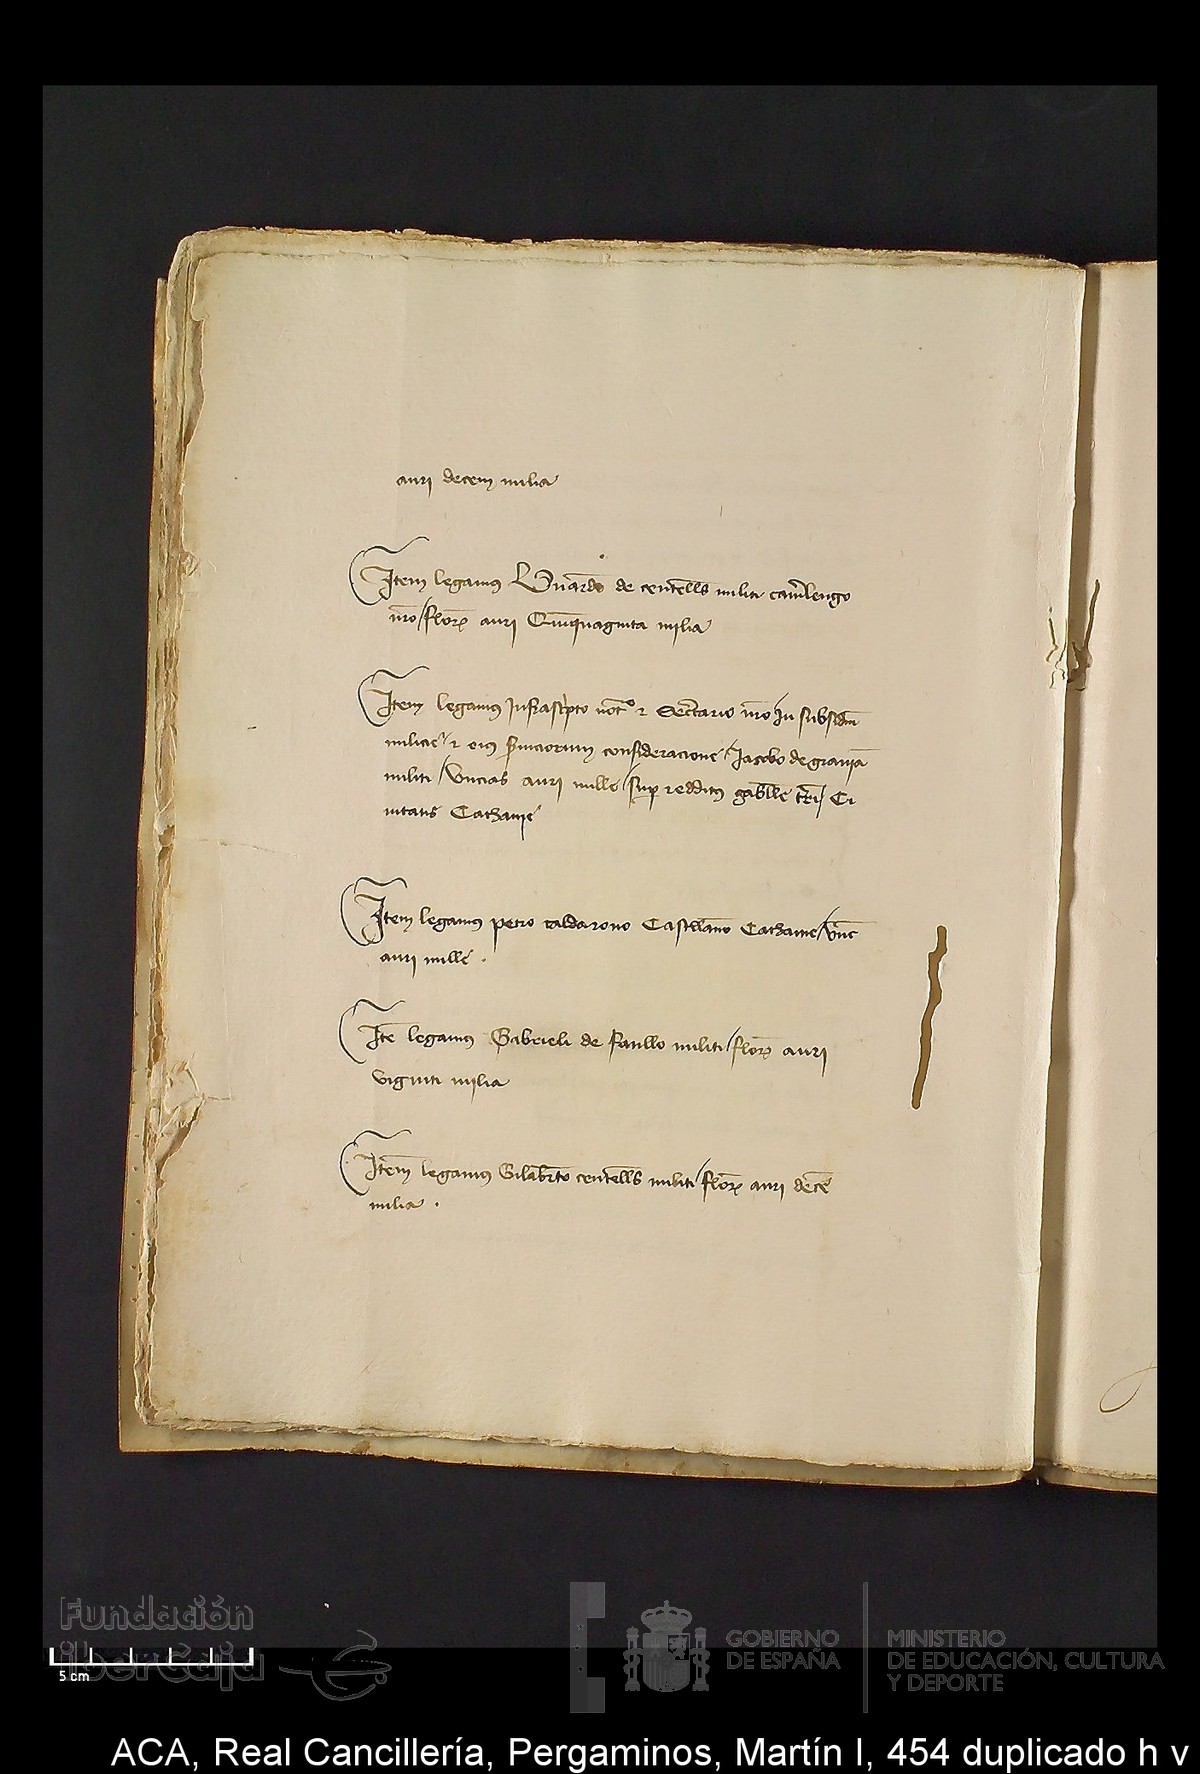 auri decem milia
Item legamus Eduardo de centells militi camerlengo
nr̄o / flor̄ auri Quinquaginta milia
Item legamus Infrascripto not° ⁊ Secretario nr̄o In subsidiū
milicie ⁊ eius serviciorum consideracione / Jacobo de gravja
militi / Vncias auri mille / sup redditus gabelle Ci
uitatis Cathanie
Item legamus petro taldarono Castellano Cathanie / vnc̄
auri mille .
Itē legamus Gabrieli de fanllo militi / flor̄ auri
viginti milia
Item legamus Gilabrto centells militi / flor̄ auri decē
milia .
Fundación
iberCaja
5 cm
GOBIERNO
DE ESPAÑA
MINISTERIO
DE EDUCACIÓN, CULTURA
Y DEPORTE
ACA, Real Cancillería, Pergaminos, Martín I, 454 duplicado h v